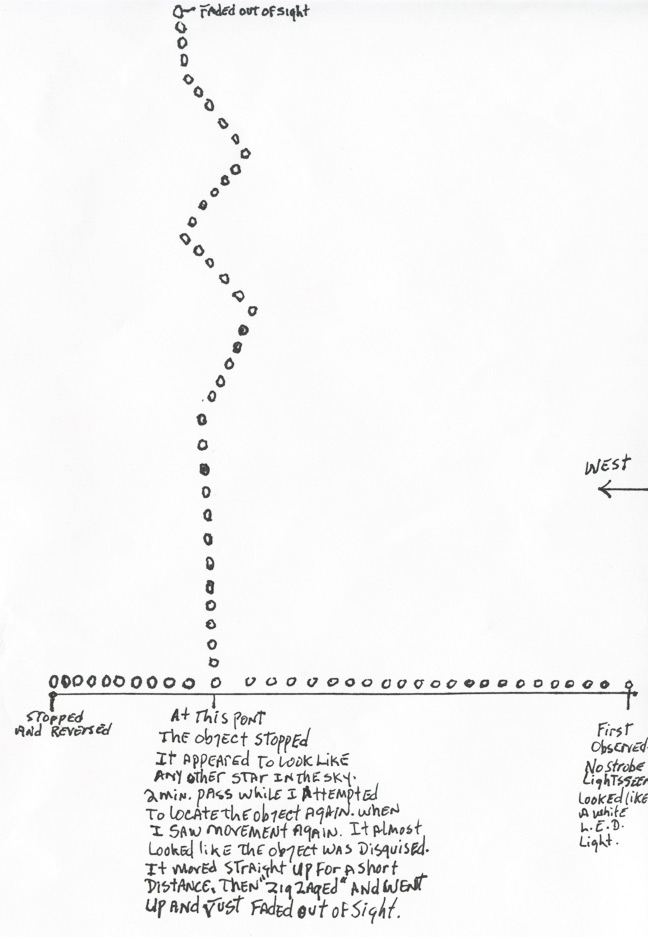 FADED OUT OF SIGHT
WEST
STOPPED
AND REVERSED
At THIS PONT
THE OBJECT STOPPED
It APPEARED TO LOOK LIKE
ANY OTHER STAR IN THE SKY.
2 MIN. PASS WHILE I AttEMPTED
TO LOCATE THE OBJECT AGAIN. WHEN
I SAW MOVEMENT AGAIN. It ALMOST
LOOKED LIKE THE OBJECT WAS DISQUISED.
It MOVED STRAIGHT UP FOR A SHORT
DISTANCE, THEN "ZIGZAGED" AND WENT
UP AND JUST FADED OUT OF SIGHT.
First
Observed.
No STROBE
LIGHTS SEEN
Looked Like
A White
L.E.D.
Light.